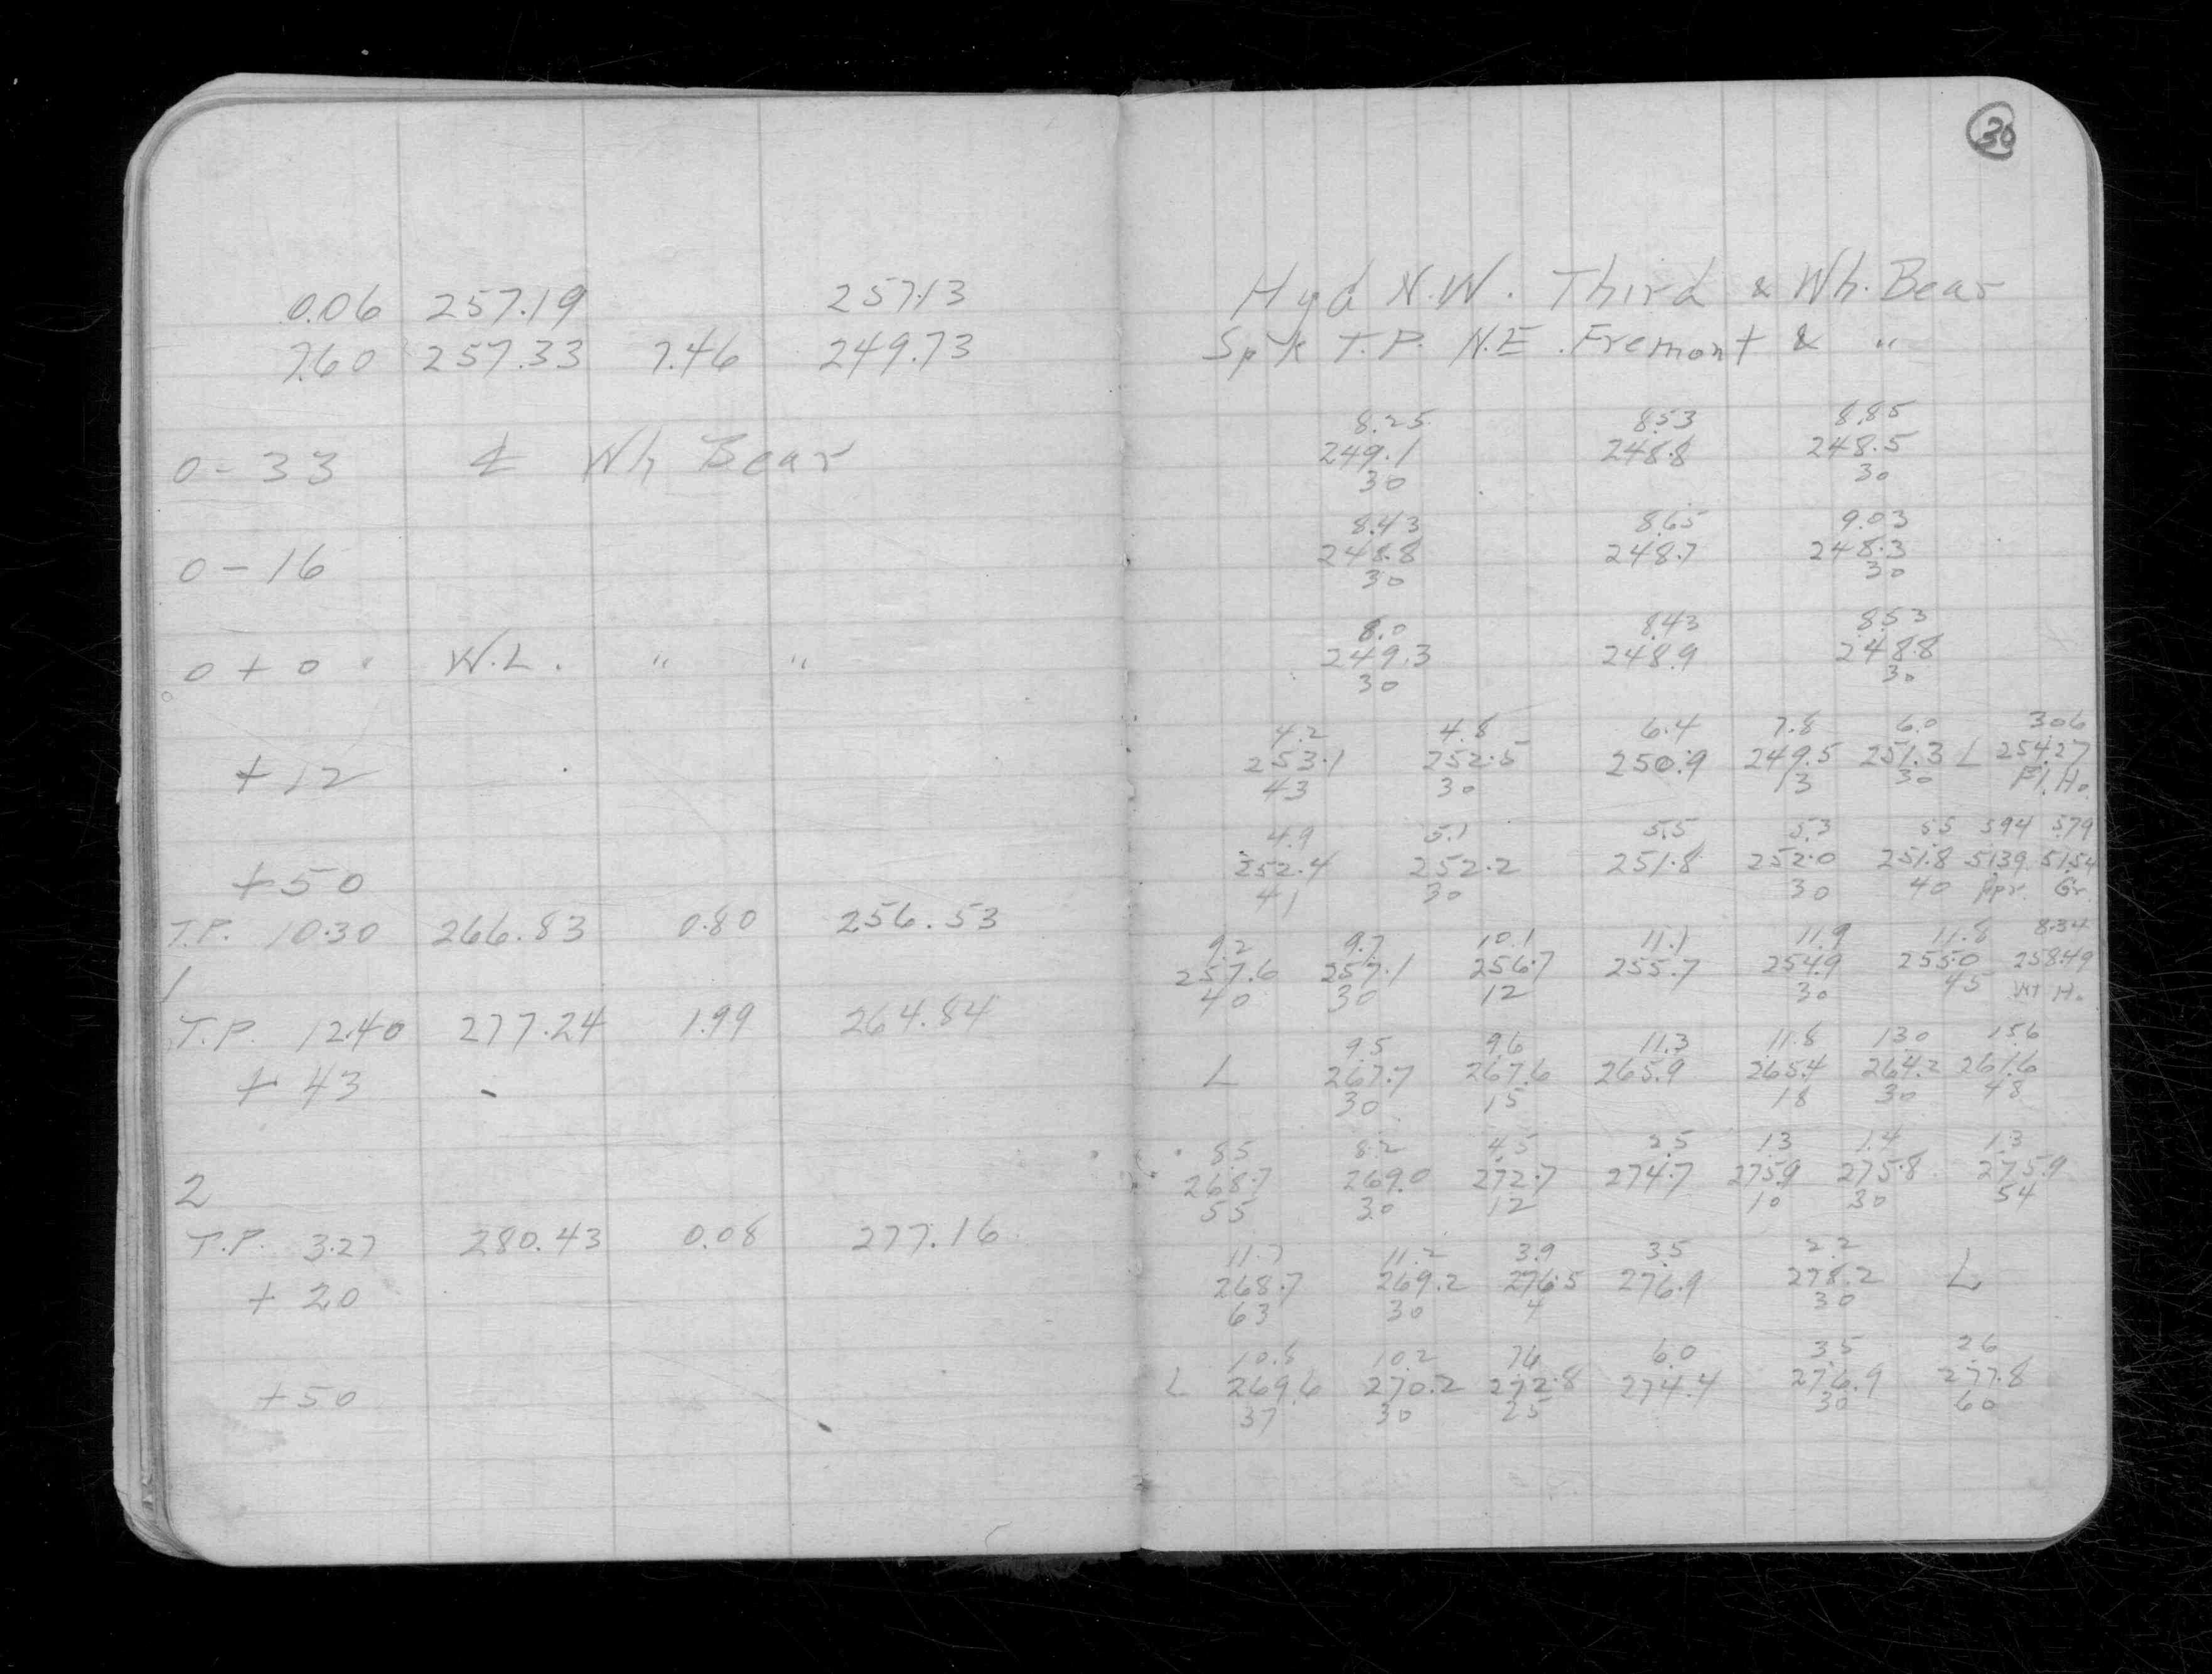 30
0.06 257.19 257.13
Hyd N.W. Third & Wh. Bear
7.60 257.33 7.46 249.73
Spk T.P. N.E. Fremont & "
8.25 8.53 8.85
0-33 ℄ Wh Bear
249.1 248.8 248.5
30 30
8.43 8.65 9.03
0-16
248.8 248.7 248.3
30 30
8.0 8.43 8.53
0+0 W.L. " "
249.3 248.9 248.8
30 30
4.2 4.8 6.4 7.8 6.0 3.06
+12
253.1 252.5 250.9 249.5 251.3 L 254.27
43 30 13 30 Fl. Ho.
4.9 5.1 5.5 5.3 5.5 5.94 5.79
+50
252.4 252.2 251.8 252.0 251.8 51.39 51.54
41 30 30 40 Apr. Gr.
T.P. 10.30 266.83 0.80 256.53
9.2 9.7 10.1 11.1 11.9 11.8 8.34
1
257.6 257.1 256.7 255.7 254.9 255.0 258.49
40 30 12 30 45 Ho.
T.P. 12.40 277.24 1.99 264.84
9.5 9.6 11.3 11.8 13.0 15.6
+43
L 267.7 267.6 265.9 265.4 264.2 261.6
30 15 18 30 48
8.5 8.2 4.5 2.5 1.3 1.4 1.3
2
268.7 269.0 272.7 274.7 275.9 275.8 275.9
55 30 12 10 30 54
T.P. 3.27 280.43 0.08 277.16
11.7 11.2 3.9 3.5 2.2
+20
268.7 269.2 276.5 276.9 278.2 L
63 30 4 30
10.8 10.2 7.6 6.0 3.5 2.6
+50
L 269.6 270.2 272.8 274.4 276.9 277.8
37 30 25 30 60